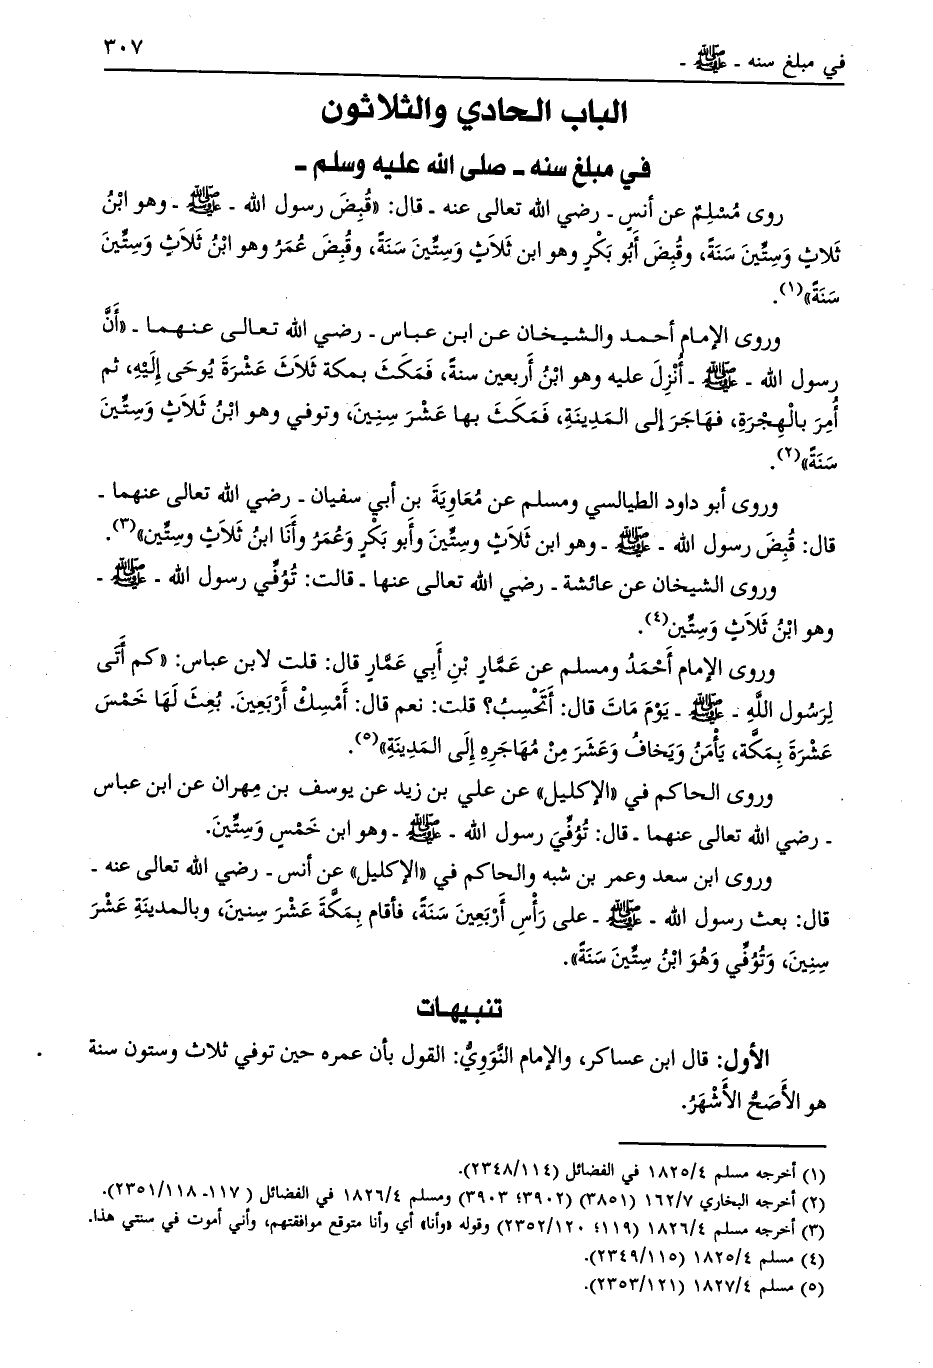 في مبلغ سنه ـ ﷺ ـ
٣٠٧
الباب الحادي والثلاثون
في مبلغ سنه ـ صلى الله عليه وسلم ـ
روى مُسْلِمٌ عن أنسٍ ـ رضي الله تعالى عنه ـ قال: «قُبِضَ رسول الله ـ ﷺ ـ وهو ابْنُ
ثَلاثٍ وَسِتِّينَ سَنَةً، وقُبِضَ أَبُو بَكْرٍ وهو ابن ثَلَاثٍ وَسِتِّينَ سَنَةً، وقُبِضَ عُمَرُ وهو ابْنُ ثَلَاثٍ وَسِتِّينَ
سَنَةً»(١).
وروى الإمام أحمد والشيخان عن ابن عباس ـ رضي الله تعالى عنهما ـ «أَنَّ
رسول الله ـ ﷺ ـ أُنْزِلَ عليه وهو ابْنُ أربعين سنةً، فَمَكَثَ بمكة ثَلَاثَ عَشْرَةَ يُوحَى إِلَيْهِ، ثم
أُمِرَ بالْهِجْرَةِ، فهَاجَرَ إلى المَدِينَةِ، فَمَكَثَ بها عَشْرَ سِنِينَ، وتوفي وهو ابْنُ ثَلَاثٍ وَسِتِّينَ
سَنَةً»(٢).
وروى أبو داود الطيالسي ومسلم عن مُعَاوِيَةَ بن أبي سفيان ـ رضي الله تعالى عنهما ـ
قال: قُبِضَ رسول الله ـ ﷺ ـ وهو ابن ثَلَاثٍ وسِتِّينَ وأَبو بَكْرٍ وَعُمَرُ وأَنَا ابنُ ثَلَاثٍ وسِتِّين»(٣).
وروى الشيخان عن عائشة ـ رضي الله تعالى عنها ـ قالت: تُوُفِّي رسول الله ـ ﷺ ـ
وهو ابْنُ ثَلَاثٍ وَسِتِّين(٤).
وروى الإمام أَحْمَدُ ومسلم عن عَمَّارِ بْنِ أَبِي عَمَّارٍ قال: قلت لابن عباس: «كم أَتَى
لِرَسُول اللَّهِ ـ ﷺ ـ يَوْمَ مَاتَ قال: أَتَحْسِبُ؟ قلت: نعم قال: أَمْسِكْ أَرْبَعِينَ. بُعِثَ لَهَا خَمْسَ
عَشْرَةَ بِمَكَّة، يَأْمَنُ وَيَخافُ وَعَشرَ مِنْ مُهَاجَرِهِ إِلَى المَدِينَةِ»(٥).
وروى الحاكم في «الإكليل» عن علي بن زيد عن يوسف بن مِهران عن ابن عباس
ـ رضي الله تعالى عنهما ـ قال: تُوُفِّيَ رسول الله ـ ﷺ ـ وهو ابن خَمْسٍ وَسِتِّينَ.
وروى ابن سعد وعمر بن شبه والحاكم في «الإكليل» عن أنس ـ رضي الله تعالى عنه ـ
قال: بعث رسول الله ـ ﷺ ـ على رَأْسِ أَرْبَعِينَ سَنَةً، فأقام بِمَكَّةَ عَشْرَ سِنينَ، وبالمدينَةِ عَشْرَ
سِنِينَ، وَتُوُفِّي وَهُوَ ابْنُ سِتِّينَ سَنَةً».
تنبيهات
الأول: قال ابن عساكر، والإمام النَّوَوِيُّ: القول بأن عمره حين توفي ثلاث وستون سنة
هو الأَصَحُّ الأَشْهَرُ.
(١) أخرجه مسلم ١٨٢٥/٤ في الفضائل (٢٣٤٨/١١٤).
(٢) أخرجه البخاري ١٦٢/٧ (٣٨٥١) (٣٩٠٢؛ ٣٩٠٣) ومسلم ١٨٢٦/٤ في الفضائل ( ١١٧ـ ٢٣٥١/١١٨).
(٣) أخرجه مسلم ١٨٢٦/٤ (١١٩؛ ٢٣٥٢/١٢٠) وقوله «وأنا» أي وأنا متوقع موافقتهم، وأني أموت في سنتي هذا.
(٤) مسلم ١٨٢٥/٤ (٢٣٤٩/١١٥).
(٥) مسلم ١٨٢٧/٤ (٢٣٥٣/١٢١).